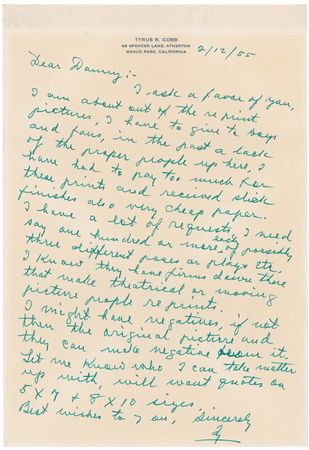 TYRUS R. COBB
48 SPENCER LANE, ATHERTON
MENLO PARK, CALIFORNIA
2/12/55
Dear Danny;-
I ask a favor of you,
I am about out of the reprint
pictures, I have to give to boys
and fans, in the past a lack
of the proper people up here, I
have had to pay too much for
these prints and received slick
finishes also very cheap paper.
I have a lot of requests, I need
say one hundred or more, of each possibly
three different poses or plays etc.
I know they have firms down there
that make theatrical or moving
picture people re prints.
I might have negatives, if not
then the original picture and
they can make negative from it.
Let me know who I can take matter
up with, will want quotes on
5 X 7 & 8 X 10 sizes.
Best wishes to you, Sincerely
Ty